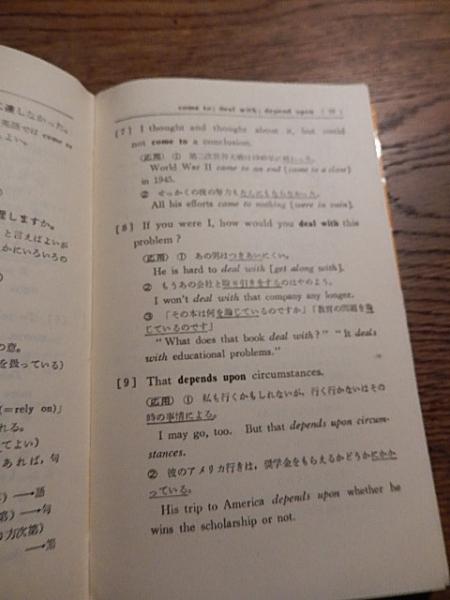 に達しなかった。
英語では come to
よい。
理しますか。
と言えばよいが
かにいろいろの
の意。
を扱っている)
(=rely on)」
れる。
てよい)
あれば, 句
→語
第) →句
力次第)
→節
come to; deal with; depend upon
[7] I thought and thought about it, but could
not come to a conclusion.
(応用) ① 第二次世界大戦は1945年に終わった。
World War II came to an end (came to a close)
in 1945.
② せっかくの彼の努力もなんにもならなかった。
All his efforts came to nothing [were in vain].
[8] If you were I, how would you deal with this
problem?
(応用) ① あの男はつきあいにくい。
He is hard to deal with [get along with].
② もうあの会社と取り引きをするのはやめよう。
I won't deal with that company any longer.
③ 「その本は何を論じているのですか」「教育の問題を論
じているのです」
"What does that book deal with?" "It deals
with educational problems."
[9] That depends upon circumstances.
(応用) ① 私も行くかもしれないが, 行く行かないはその
時の事情による。
I may go, too. But that depends upon circum-
stances.
② 彼のアメリカ行きは, 奨学金をもらえるかどうかにかか
っている。
His trip to America depends upon whether he
wins the scholarship or not.